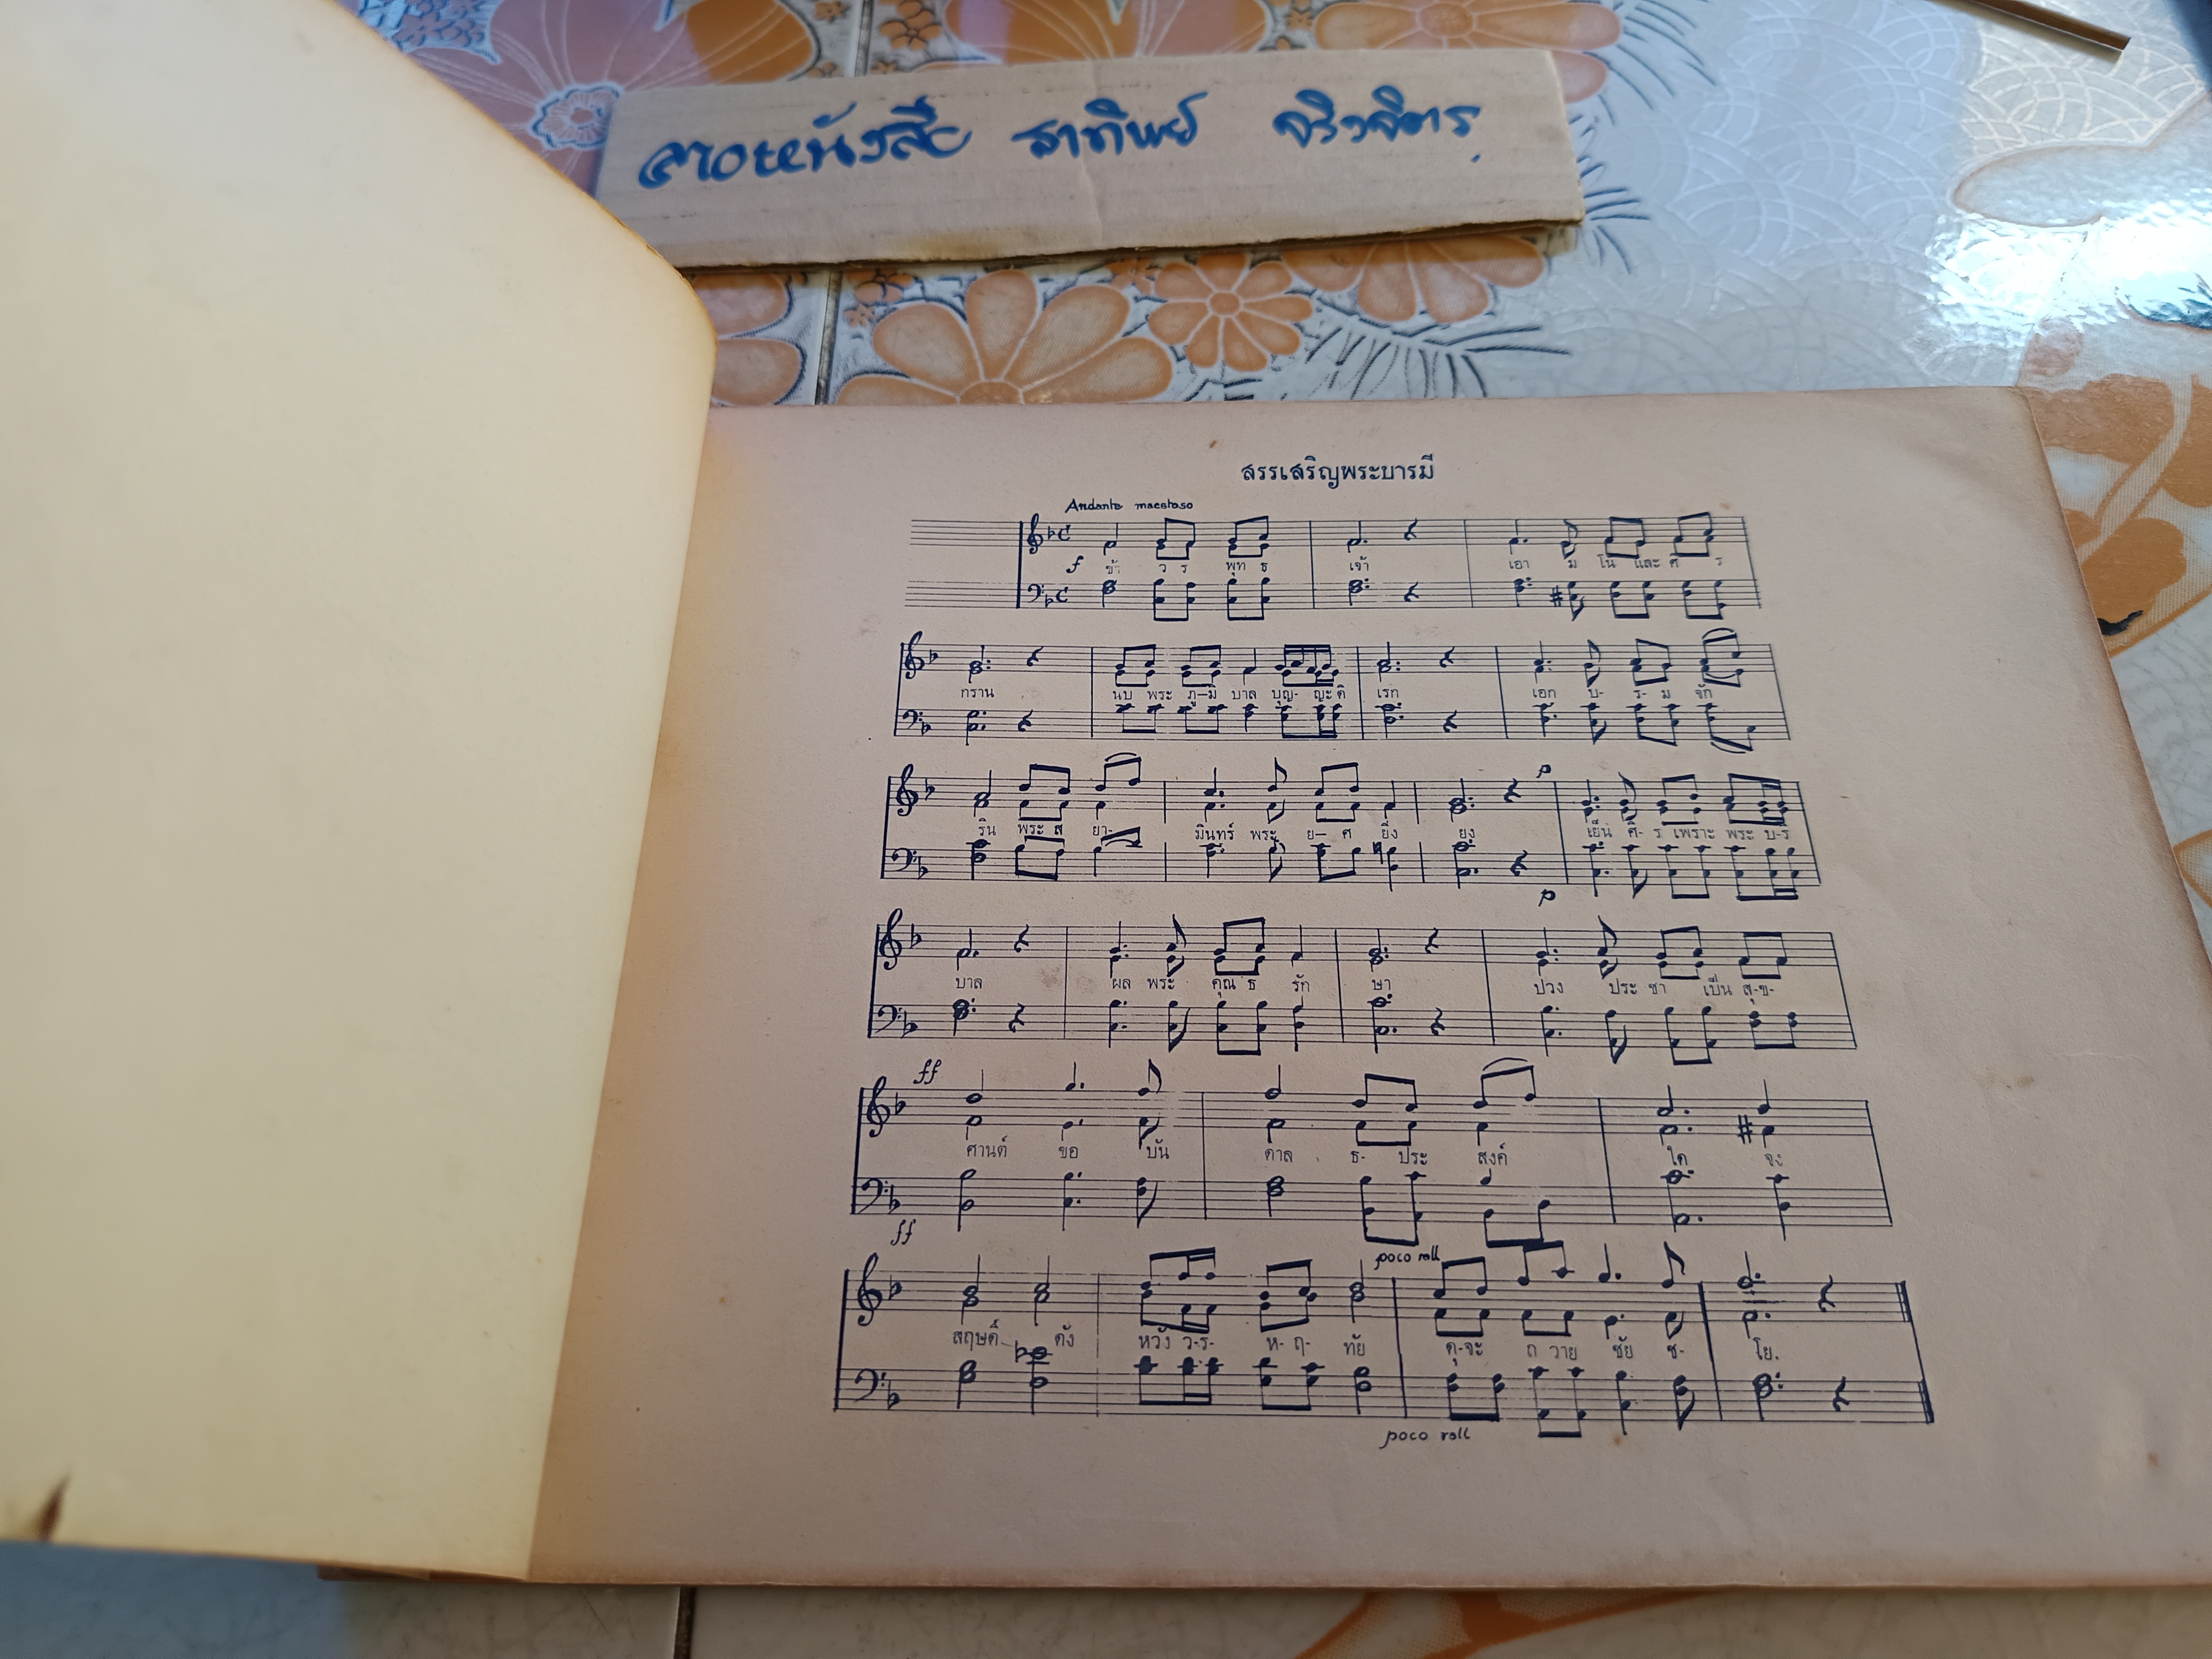 สรรเสริญพระบารมี
Andante maestoso
f ข้า ว ร พุท ธ เจ้า เอา ม โน และ ศิ ร
กราน นบ พระ ภู-มิ บาล บุญ- ญะ ดิ เรก เอก บ- ร- ม จัก
p
ริน พระ ส ยา- มินทร์ พระ ย- ศ ยิ่ง ยง เย็น ศิ- ร เพราะ พระ บ-ริ
p
บาล ผล พระ คุณ ธ รัก ษา ปวง ประ ชา เป็น สุ-ข-
ff
ศานต์ ขอ บัน ดาล ธ- ประ สงค์ ใด จง
ff
poco rall
สฤษดิ์ ดัง หวัง ว-ร- ห- ฤ- ทัย ดุ-จะ ถ วาย ชัย ช- โย.
poco rall